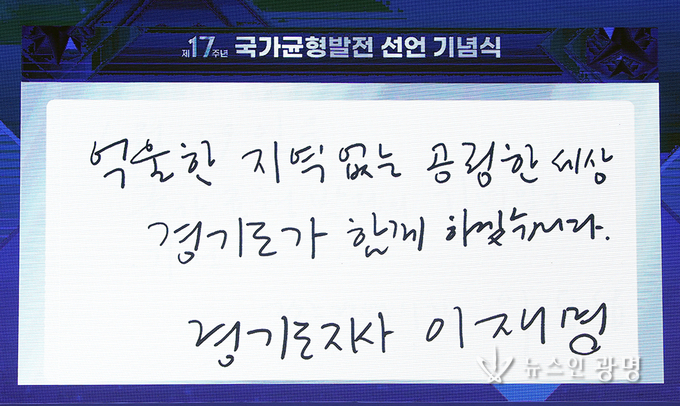 제17주년 국가균형발전 선언 기념식
억울한 지역 없는 공정한 세상
경기도가 함께 하겠습니다.
경기도지사 이재명
뉴스인 광명